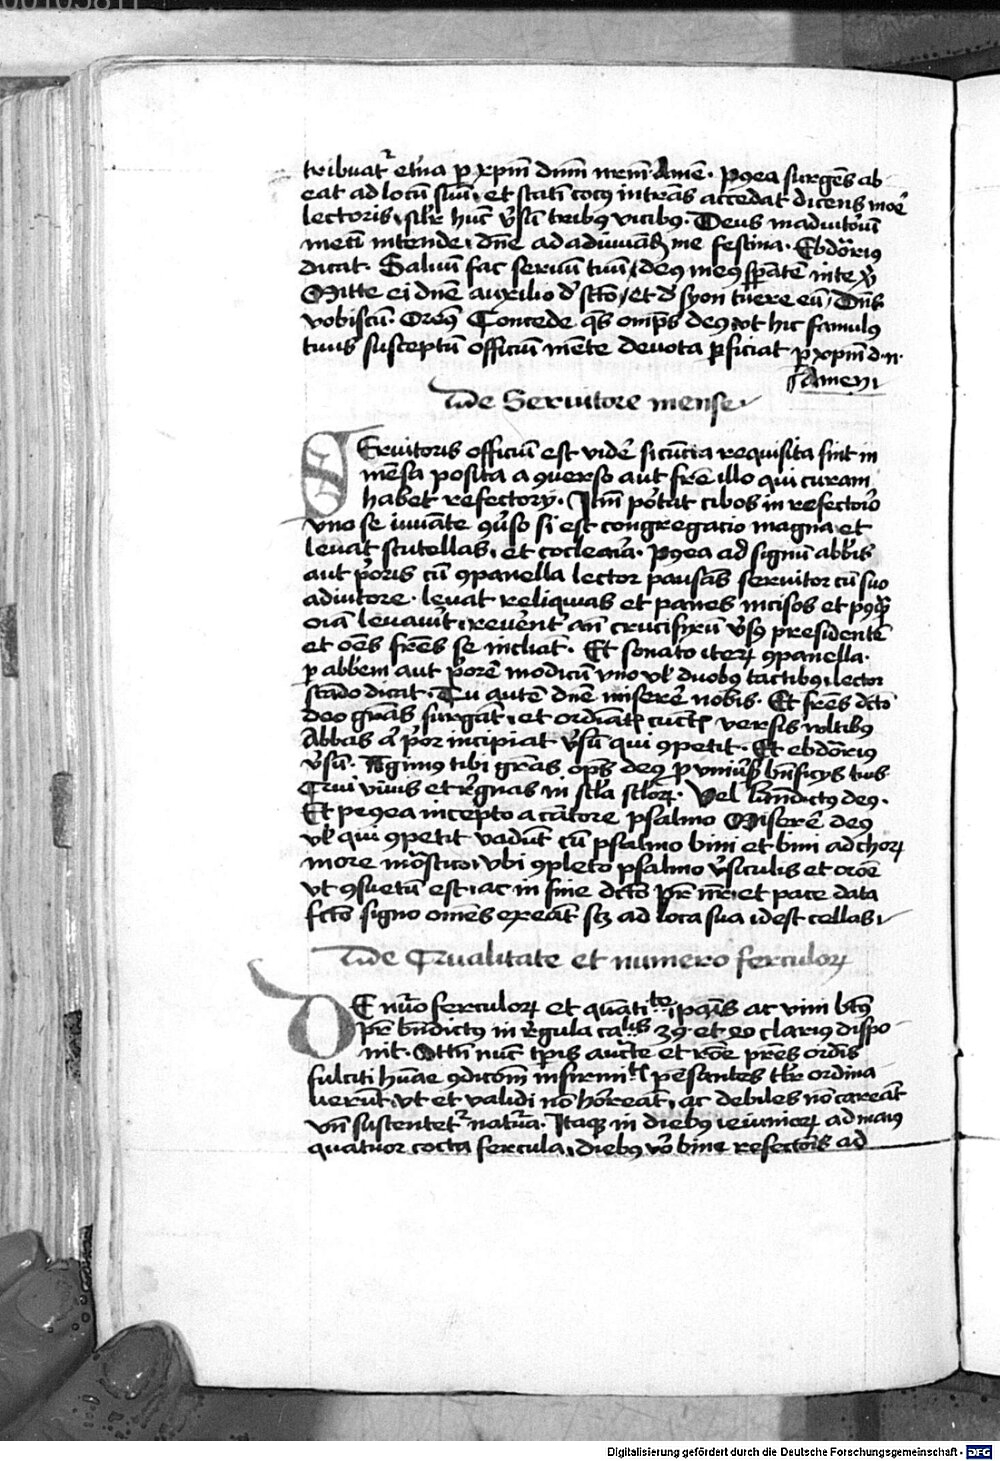 tribuat᷑ et̄na p xp̄m dn̄m nr̄m Amē. Pꝯea surgēs ab
eat ad locū suū, et statī cocꝯ intrās accedat dicens moē
lectoris, sil̄r hūc v̄sū tribꝯ vicibꝯ. Deus in adiutoriū
meū intende, dn̄e ad adiuuandū me festina. Ebdōriꝯ
dicat. Saluū fac seruū tuū, deꝯ meꝯ sp̄antē in te,
Mitte ei dn̄e auxiliū d̄ scto, et d̄ syon tuere eū, Dn̄s
vobiscū. Concede qs om̄ps deꝯ vt hic famulꝯ
tuus susceptū officiū mēte deuota p̄ficiat p xp̄m d. n.
Amen
De Seruitore mense
SEruitoris officiū est vidē si cūcta requisita sint in
mēsa posita a ꝯuerso aut fr̄e illo qui curam
habet refectorij. Itm̄ portat cibos in refectorio
vno se iuuāte ꝯūso si est congregacio magna et
leuat scutellas, et coclearia. Pꝯea ad signū abb̄is
aut p̄oris cū ꝯpanella lector pausās seruitor cū suo
adiutore. leuat reliquias et panes incisos et pꝯqꝫ
oīa leuauit, reuer̄ent an̄ crucifixū v̄sꝯ presidentē
et oēs fr̄es se incliat. Et sonato iterꝝ ꝯpanella
p abb̄em aut p̄orē modicū vno vl̄ duobꝯ tactibꝯ, lector
stādo dicat. Tu autē dn̄e miserē nobis. Et fr̄es dc̄to
deo gr̄as surgāt, et ordīate cūctꝭ versis vultibꝯ
Abbas a᷑ p̄or incipiat v̄sū qui ꝯpetit. Et ebdōriꝯ
v̄sū. Agimꝯ tibi gr̄as, op̄s deꝯ p vniūsꝭ bn̄ficijs tuis
Qui viuis et regnas in scl̄a scl̄orꝝ. Vel bn̄dictꝯ deꝯ.
Et pꝯea incepto a cātore psalmo Miserē deꝯ
vl̄ qui ꝯpetit vadūt cū psalmo bini et bini ad chorꝝ
more monastico, vbi ꝯpleto psalmo v̄siculis et oroē
vt ꝯsuetū est, ac in fine dc̄to pr̄ nr̄, et pace data
fc̄to signo omēs exeāt scꝫ ad loca sua id est cellas
De Qualitate et numero ferculorꝝ
DE nūo ferculorꝝ et quāti te, panis ac vini btꝯ
pr̄ bn̄dictꝯ in regula calis 39 et 40 clariꝯ dispo
nit. Attn̄ nūc tp̄is auct̄e et rōe pres ordīs
fulciti hūane ꝯdicōm infirmitꝭ pensantes tl̄r ordina
uerūt, vt et validi nō horreāt, ac debiles nō careāt
vn̄ sustentet᷑ natura. Itaqꝫ in diebꝯ ieiuniorꝝ ad maiꝯ
quatuor cocta fercula, diebꝯ v̄o bine refectōis ad
Digitalisierung gefördert durch die Deutsche Forschungsgemeinschaft - DFG